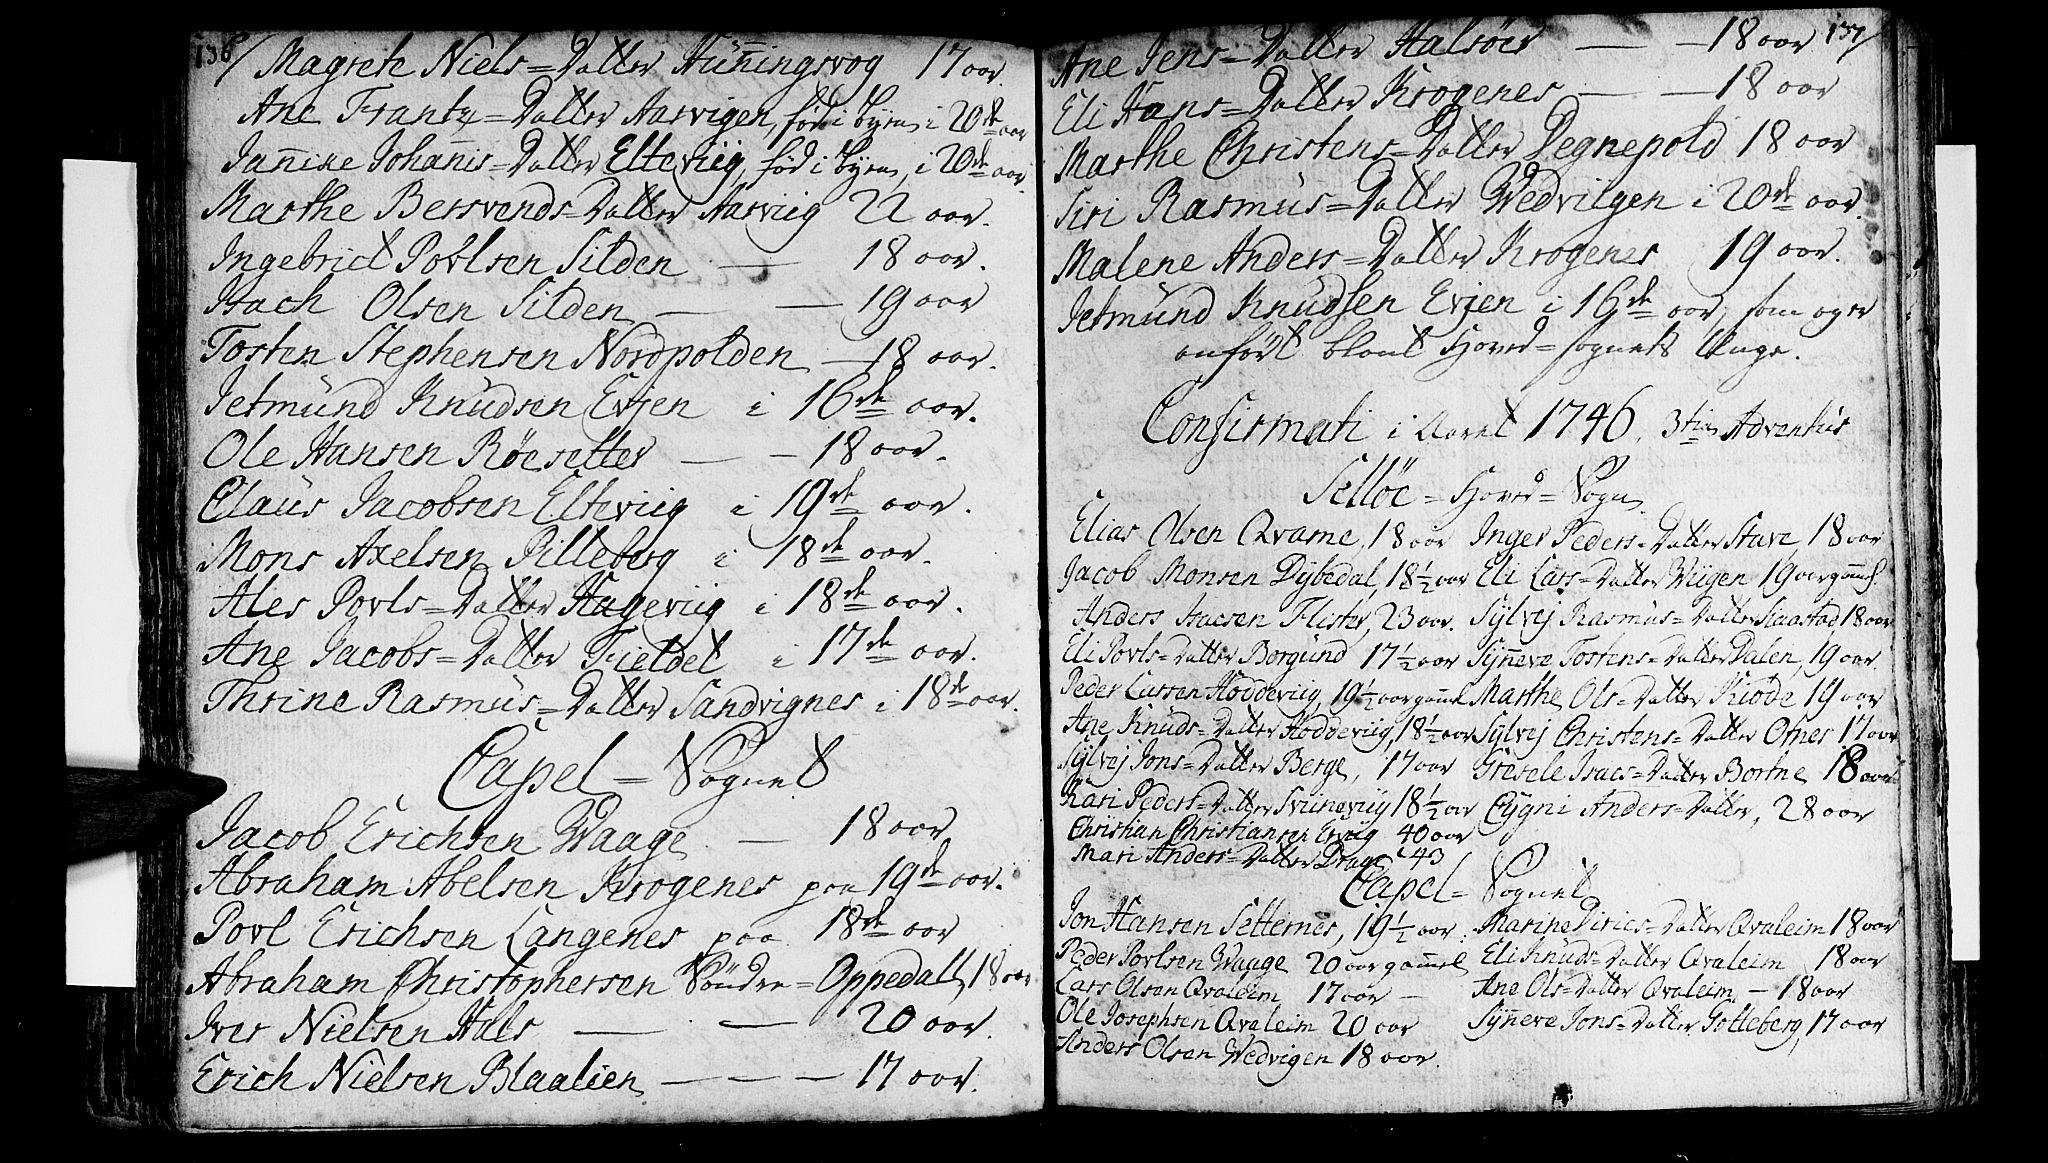 136/
Magrete Niels=Datter Hunningsvog 17 aar
Ane Frantz=Datter Aarvigen, fød i byen i 20de aar
Jannike Johannis=Datter Elteviig, fød i byen, i 20de aar
Marthe Bersvends=Datter Aarviig 22 aar.
Ingebrict Povlsen Silden — 18 aar.
Isach Olsen Silden — — 19 aar
Tosten Stephensen Nordpolden — 18 aar.
Jetmund Knudsen Evjen i 16de aar.
Ole Hansen Röesetter — — 18 aar.
Claus Jacobsen Elteviig i 19de aar.
Mons Axelsen Pilleberg i 18de aar.
Ales Povls=Datter Hageviig i 18de aar.
Ane Jacobs=Datter Fieldet i 17de aar.
Thrine Rasmus=Datter Sandvignes i 18de aar.
Capel=Sognet
Jacob Erichsen Waage — 18 aar
Abraham Abelsen Krogenes paa 19de aar.
Povl Erichsen Langenes paa 18de aar
Abraham Christophersen Söndre=Oppedall, 18 aar
Iver Nielsen Hals — — 20 aar.
Erich Nielsen Blaalien — — — 17 aar.
137/
Ane Jens=Datter Halsöer — — 18 aar
Eli Hans=Datter Krogenes — — 18 aar
Marthe Christens=Datter Degnepold 18 aar
Siri Rasmus=Datter Wedviigen i 20de aar.
Malene Anders=Datter Krogenes 19 aar.
Jetmund Knudsen Evjen i 16de aar, som oger
anført blant Hoved=sognets Unge.
Confirmati i Aaret 1746. 3tia Adventus
Selløe=Hoved=Sogn
Elias Olsen Qvame, 18 aar Inger Peders=Datter Stave, 18 aar
Jacob Monsen Dybedal, 18½ aar Eli Lars=Datter Wiigen 19 aar gammel
Anders Isacsen Flister, 23 aar. Sylvej Rasmus=Datter Slaastad 18 aar
Eli Povls=Datter Borgund 17½ aar Synneve Tostens=Datter Dalen, 19 aar.
Peder Larsen Hoddeviig, 19½ aar gammel Marthe Ols=Datter Kiöde 19 aar
Ane Knuds=Datter Hoddeviig, 18½ aar Sylvej Christens=Datter Osnes 17 aar
Sylvej Jons=Datter Berge, 17 aar Gresele Isacs=Datter Bortne 18 aar
Kari Peders=Datter Sviineviig 18½ aar Cygni Anders=Datter, 28 aar
Christian Christiansen Erviig 40 aar
Mari Anders=Datter Drage 43
Capel=Sognet
Jon Hansen Setternes, 19½ aar. Marine Diries=Datter Qvaleim 18 aar
Peder Povlsen Waage 20 aar gammel Eli Knuds=Datter Qvaleim 18 aar
Lars Olsen Qvaleim 17 aar — Ane Ols=Datter Qvaleim — 18 aar
Ole Josephsen Qvaleim 20 aar Synneve Jons=Datter Gotteberg, 17 aar
Anders Olsen Wedvigen 18 aar.